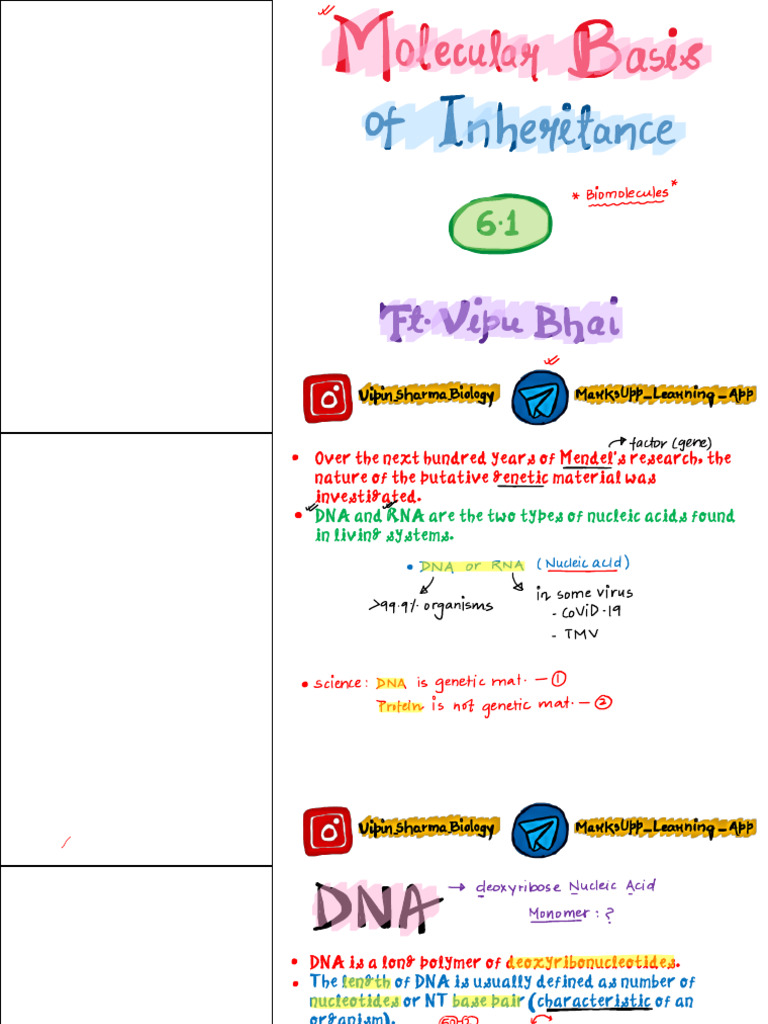 Molecular Basis
of Inheritance
* Biomolecules *
6.1
Ft. Vipu Bhai
Vipin_Sharma_Biology
MarksUpp_Learning_App
factor (gene)
• Over the next hundred years of Mendel's research, the
nature of the putative genetic material was
investigated.
• DNA and RNA are the two types of nucleic acids found
in living systems.
• DNA or RNA (Nucleic acid)
>99.9% organisms
in some virus
- COVID-19
- TMV
• science: DNA is genetic mat. — ①
Protein is not genetic mat. — ②
Vipin_Sharma_Biology
MarksUpp_Learning_App
DNA → deoxyribose Nucleic Acid
Monomer : ?
• DNA is a long polymer of deoxyribonucleotides.
• The length of DNA is usually defined as number of
nucleotides or NT base pair (characteristic of an
organism).